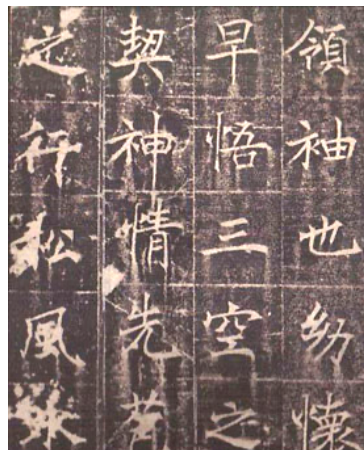 領袖也幼懷
早悟三空之
契神情先苞
之行松風水